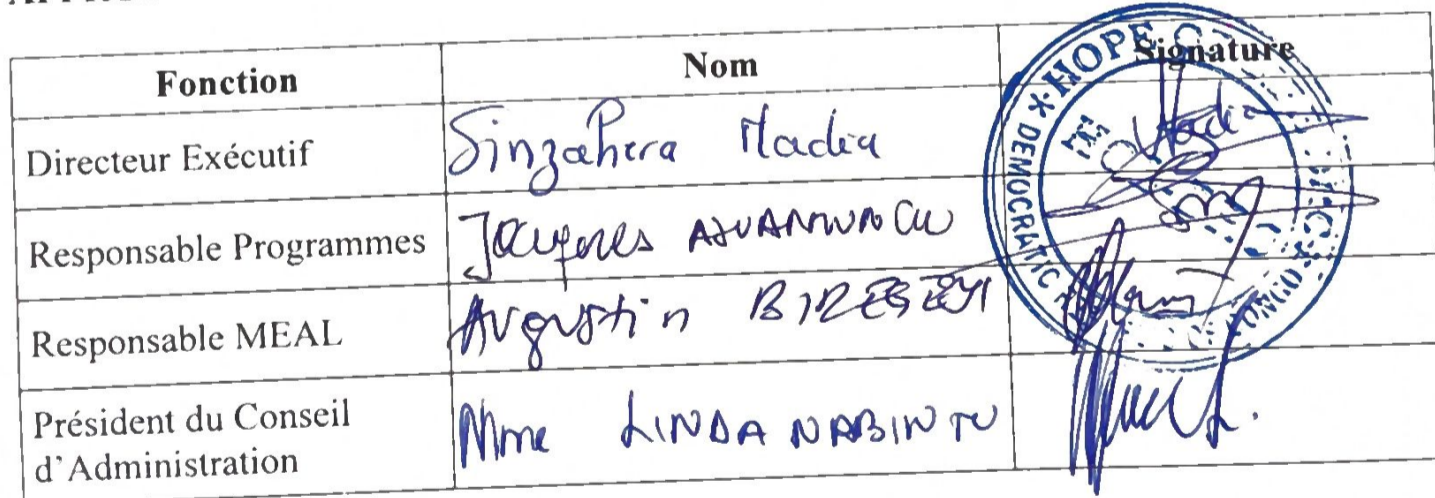 Fonction Nom Signature
Directeur Exécutif Sinzahera Madia
Responsable Programmes Jacques
Responsable MEAL Augustin
Président du Conseil
d'Administration Mme LINDA NABINTU
HOPE
DEMOCRATIC
CONGO